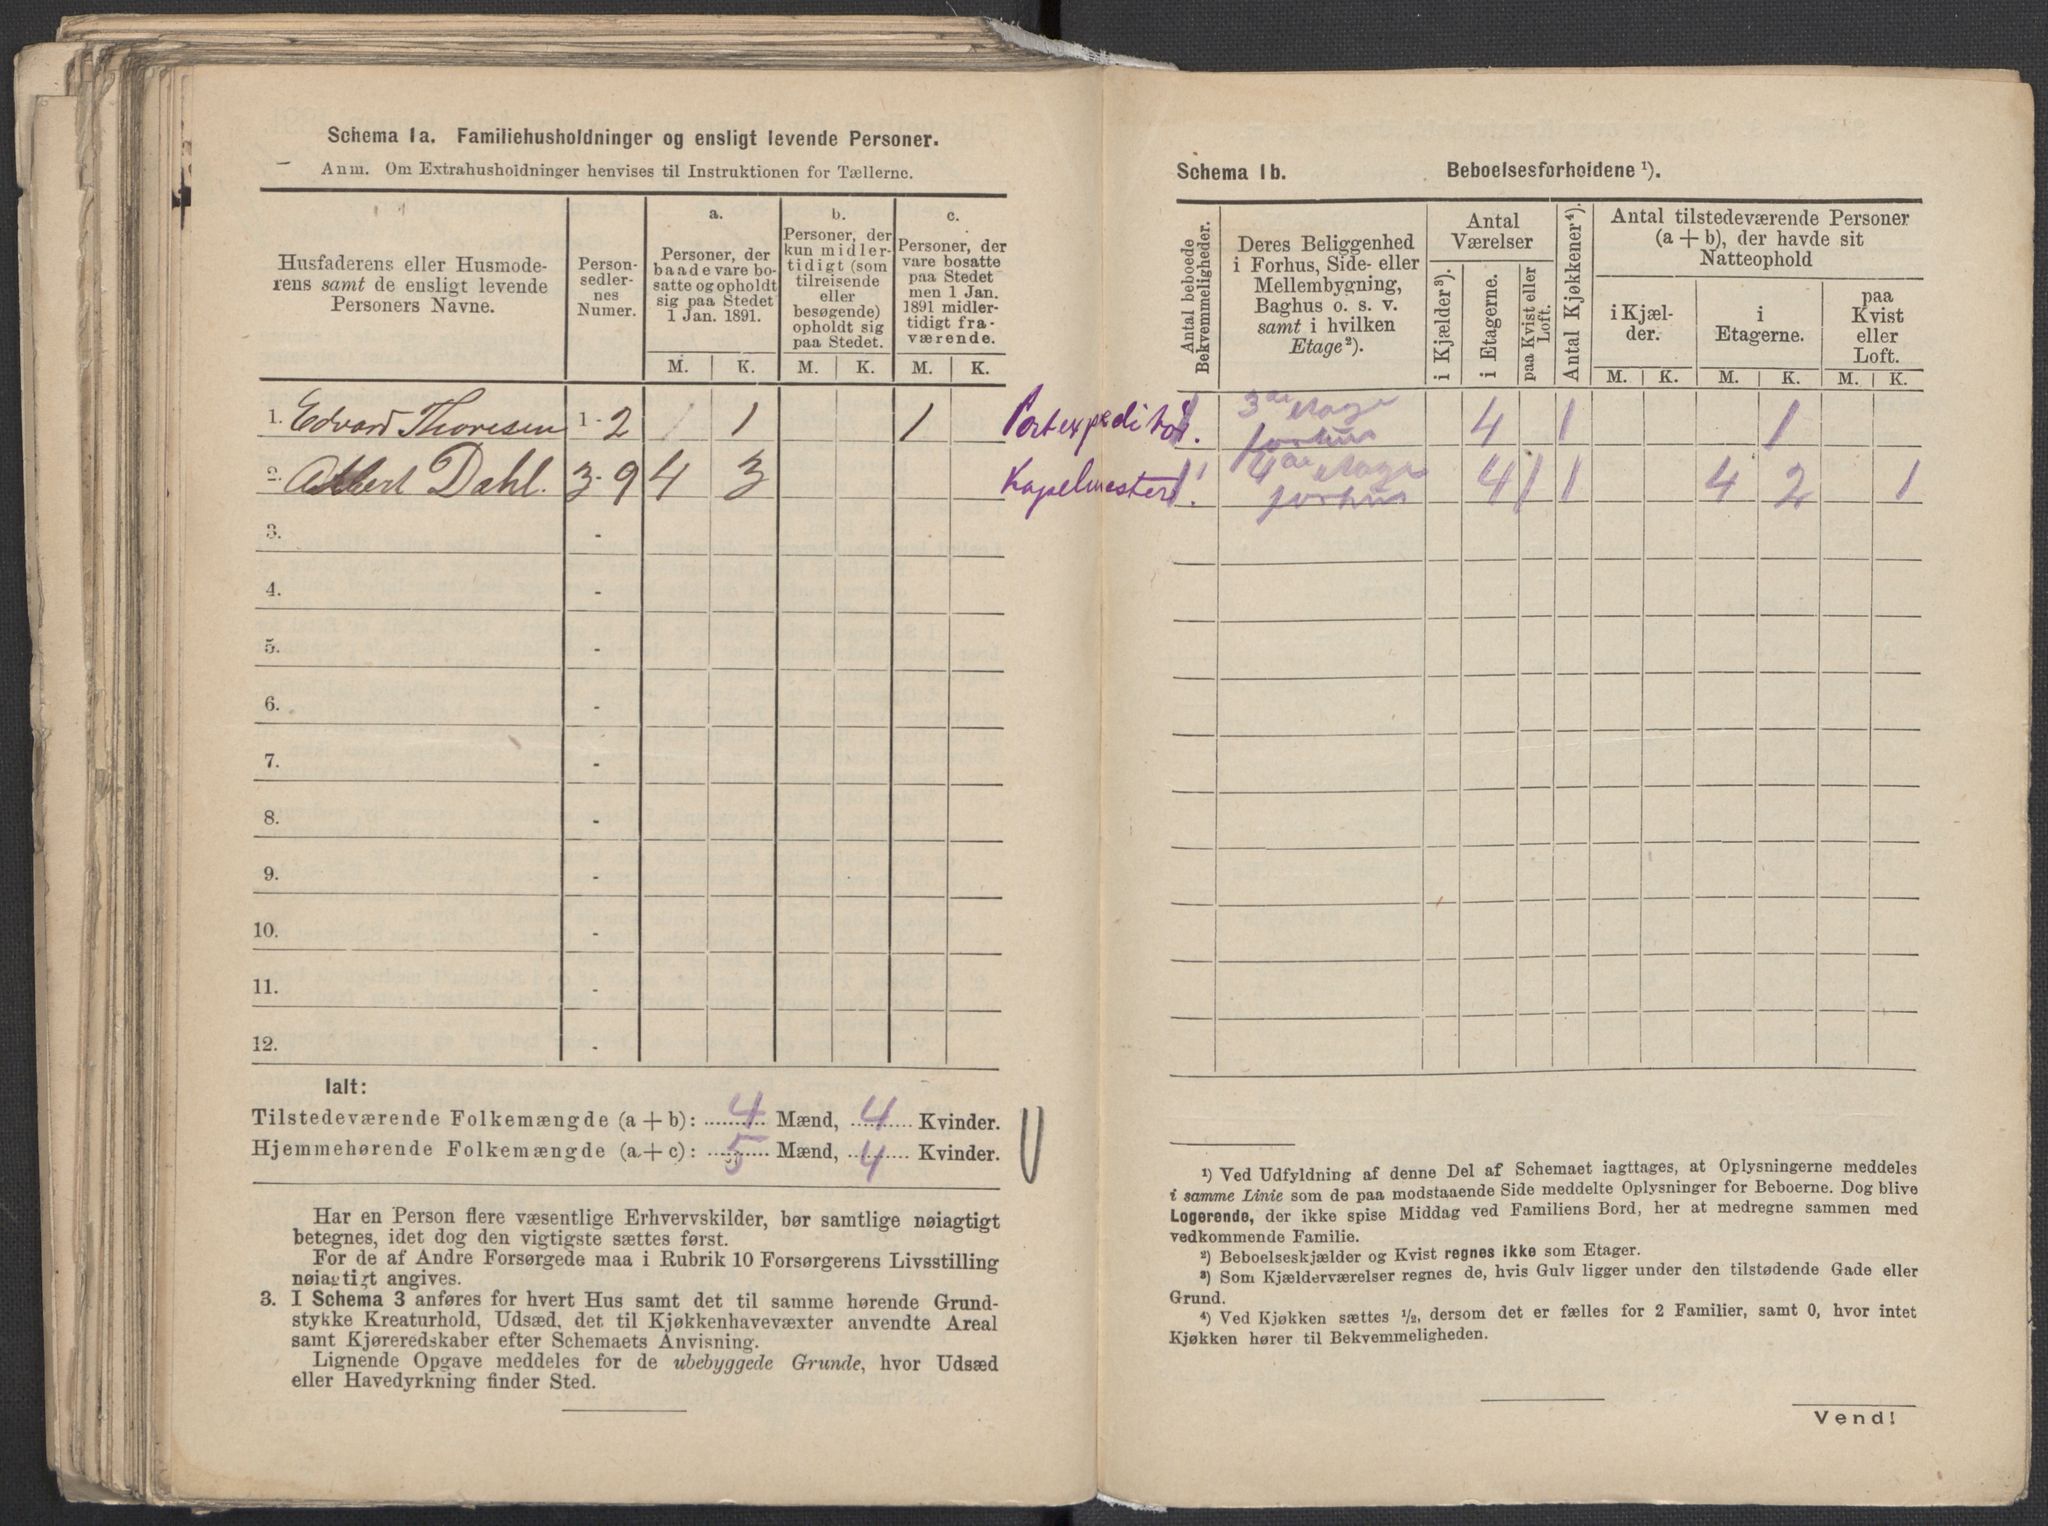 Schema 1a. Familiehusholdninger og ensligt levende Personer.
Anm. Om Extrahusholdninger henvises til Instruktionen for Tællerne.
Husfaderens eller Husmode-
rens samt de ensligt levende
Personers Navne.
Person-
sedler-
nes
Numer.
a.
Personer, der
baade vare bo-
satte og opholdt
sig paa Stedet
1 Jan. 1891.
b.
Personer, der
kun midler-
tidigt (som
tilreisende
eller
besøgende)
opholdt sig
paa Stedet.
c.
Personer, der
vare bosatte
paa Stedet
men 1 Jan.
1891 midler-
tidigt fra-
værende.
M. K. M. K. M. K.
1. Edvard Thoresen 1-2 1 1 Postexpeditør.
2. Albert Dahl. 3-9 4 3 Kapelmester.
3. -
4. -
5. -
6. -
7. -
8. -
9. -
10. -
11. -
12. -
Ialt:
Tilstedeværende Folkemængde (a+b): 4 Mænd, 4 Kvinder.
Hjemmehørende Folkemængde (a+c): 5 Mænd, 4 Kvinder.
Har en Person flere væsentlige Erhvervskilder, bør samtlige nøiagtigt
betegnes, idet dog den vigtigste sættes først.
For de af Andre Forsørgede maa i Rubrik 10 Forsørgerens Livsstilling
nøiagtigt angives.
3. I Schema 3 anføres for hvert Hus samt det til samme hørende Grund-
stykke Kreaturhold, Udsæd, det til Kjøkkenhavevæxter anvendte Areal
samt Kjøreredskaber efter Schemaets Anvisning.
Lignende Opgave meddeles for de ubebyggede Grunde, hvor Udsæd
eller Havedyrkning finder Sted.
Schema 1b. Beboelsesforholdene ¹).
Antal beboede
Bekvemmeligheder.
Deres Beliggenhed
i Forhus, Side- eller
Mellembygning,
Baghus o. s. v.
samt i hvilken
Etage²).
Antal
Værelser
i Kjælder³).
i Etagerne.
paa Kvist eller
Loft.
Antal Kjøkkener⁴).
Antal tilstedeværende Personer
(a + b), der havde sit
Natteophold
i Kjæl-
der.
i
Etagerne.
paa
Kvist
eller
Loft.
M. K. M. K. M. K.
1 3die etage
forhus 4 1 1
1 4de etage
forhus 4 1 1 4 2 1
¹) Ved Udfyldning af denne Del af Schemaet iagttages, at Oplysningerne meddeles
i samme Linie som de paa modstaaende Side meddelte Oplysninger for Beboerne. Dog blive
Logerende, der ikke spise Middag ved Familiens Bord, her at medregne sammen med
vedkommende Familie.
²) Beboelseskjælder og Kvist regnes ikke som Etager.
³) Som Kjælderværelser regnes de, hvis Gulv ligger under den tilstødende Gade eller
Grund.
⁴) Ved Kjøkken sættes ½, dersom det er fælles for 2 Familier, samt 0, hvor intet
Kjøkken hører til Bekvemmeligheden.
Vend!